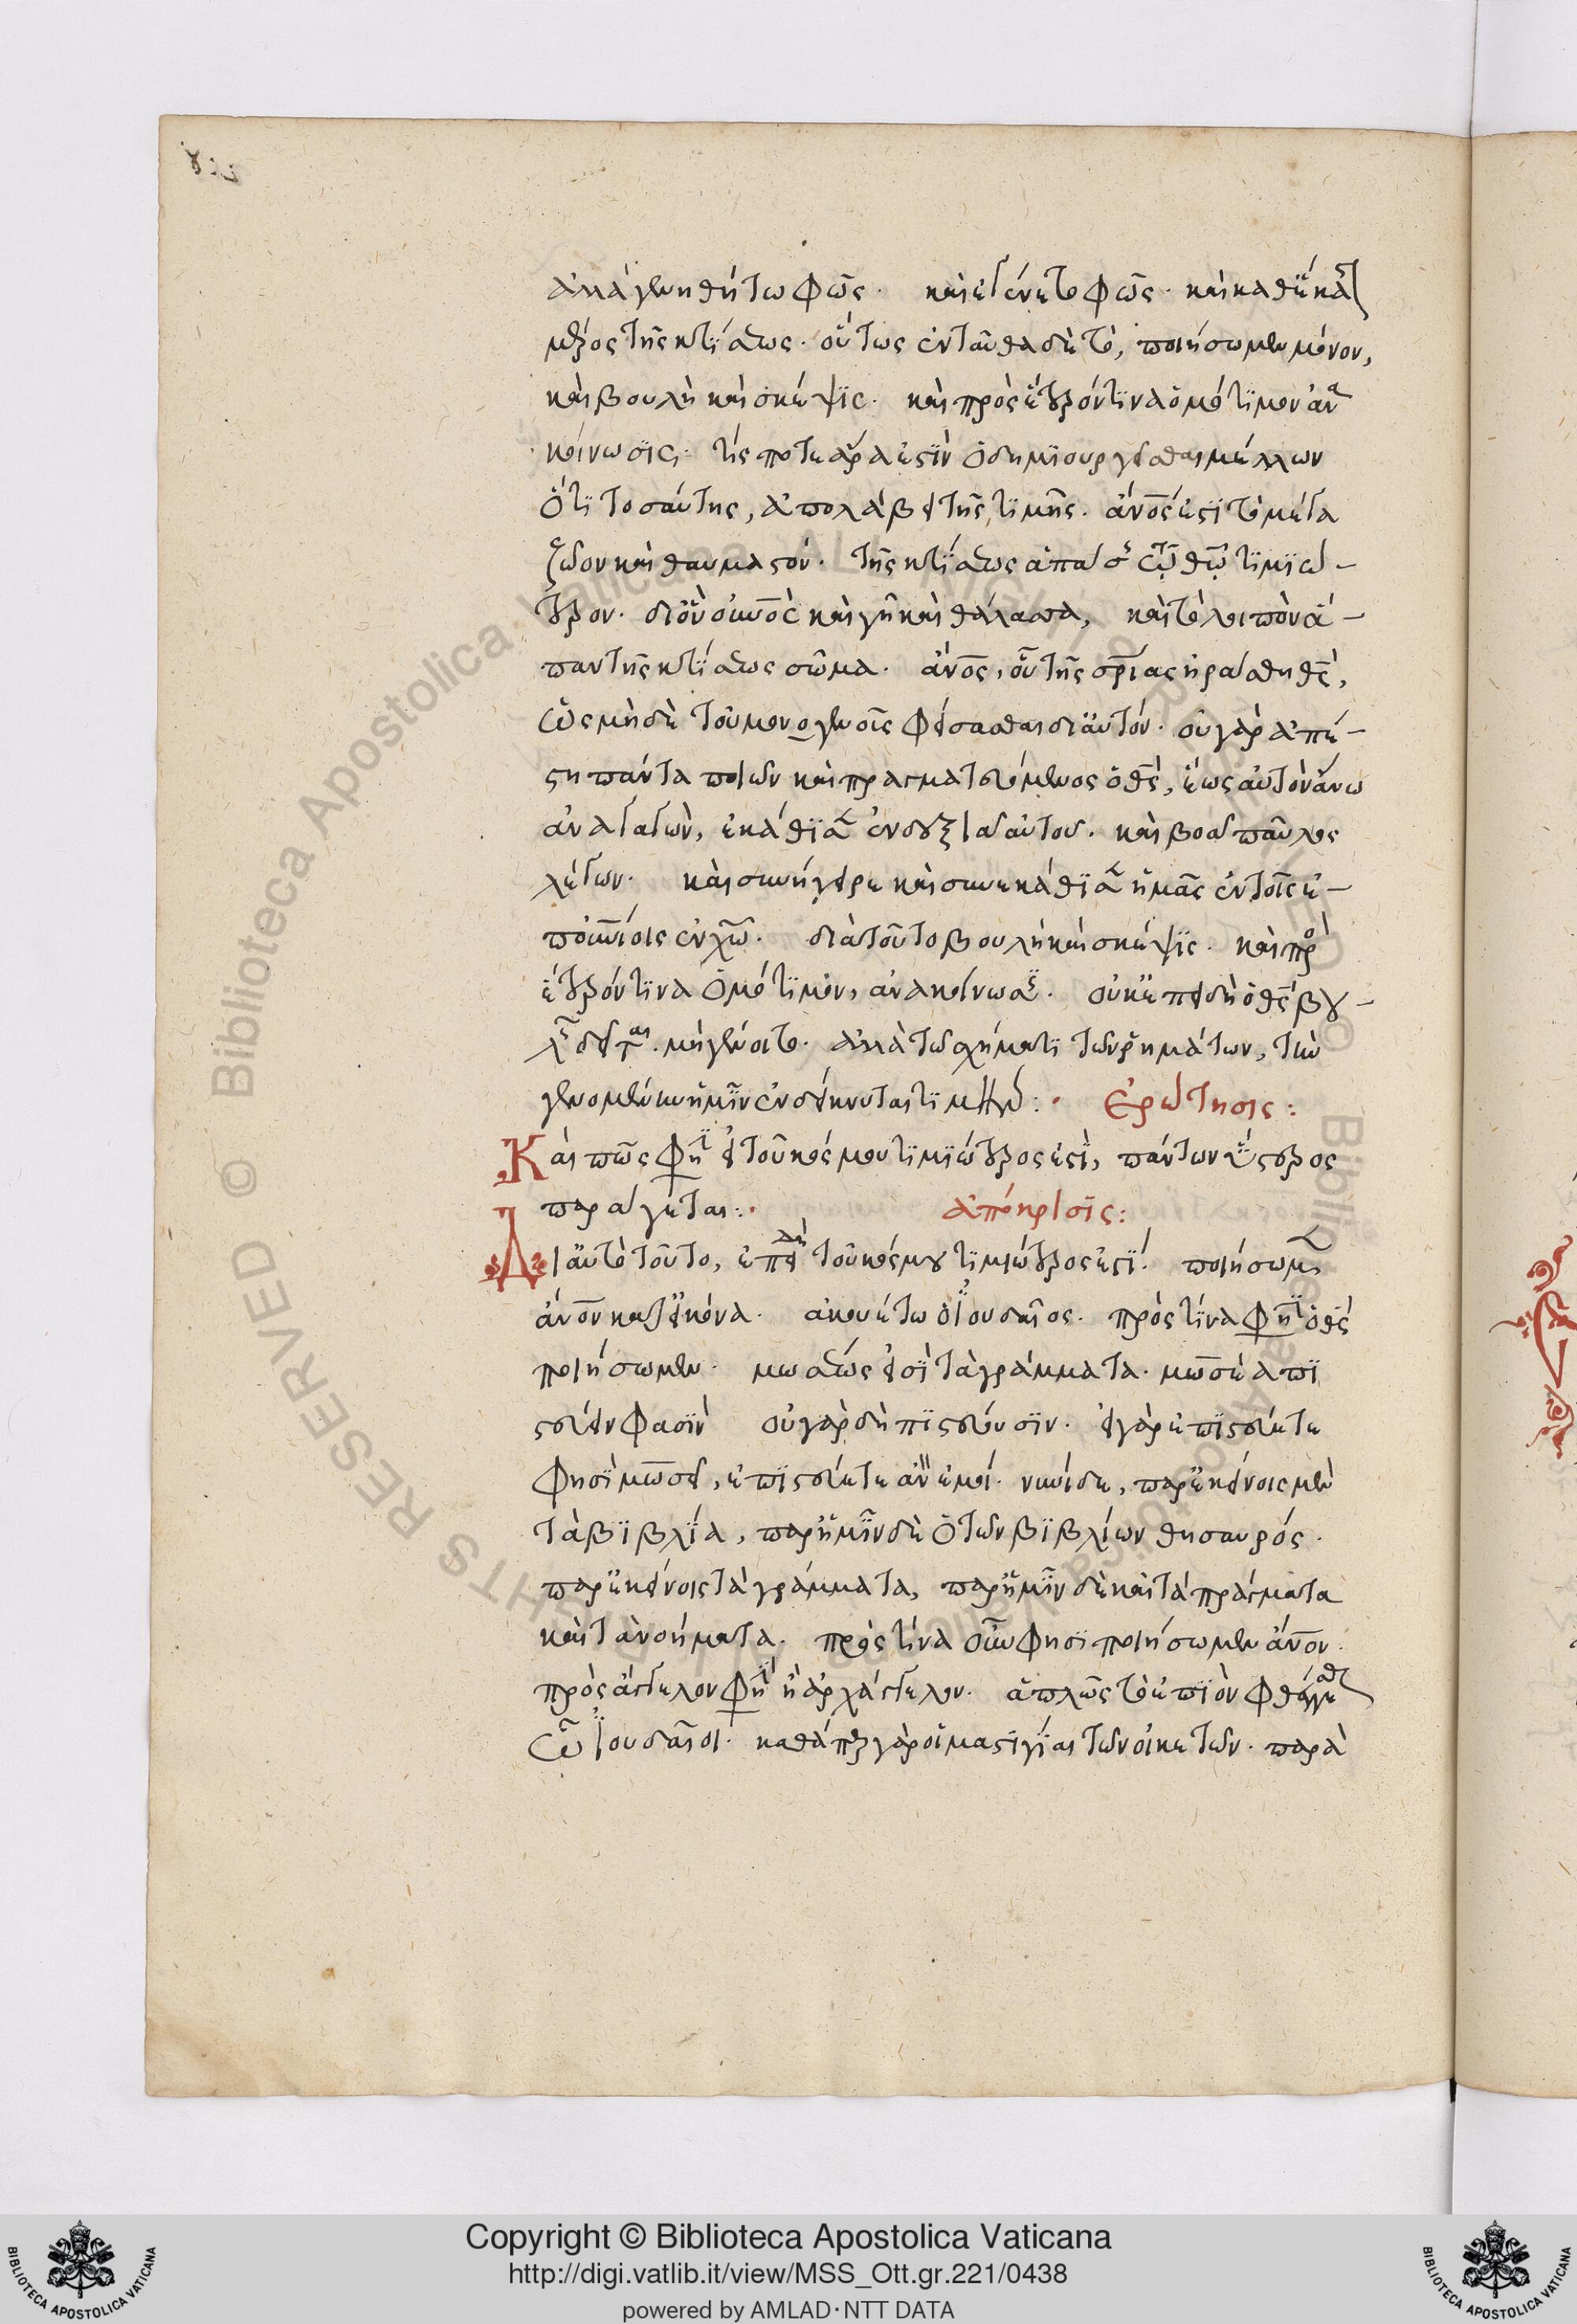 ἀλλὰ γενηθήτω φῶς· καὶ ἐγένετο φῶς· καὶ καθ' ἕκαστ
μέρος τῆς κτίσεως· οὕτως ἐνταῦθα δὲ τὸ, ποιήσωμεν μόνον,
καὶ βουλὴ καὶ σκέψις· καὶ πρὸς ἕτερόν τινα ὁμότιμον ἀνα
κοίνωσις· τίς ποτε ἄρα ἐστὶν ὁ δημιουργεῖσθαι μέλλων
ὅτι τοσαύτης, ἀπολάβει τῆς τιμῆς· ἄνος ἐστὶ τὸ μέγα
ζῶον καὶ θαυμαστόν· τῆς κτίσεως ἁπάσης τῷ θῶ τιμιώ-
τερον· δι' ὃν οὐνος καὶ γῆ καὶ θάλασσα, καὶ τὸ λοιπὸν ἅ-
παν τῆς κτίσεως σῶμα· ἄνος, οὗ τῆς σριας ἠράσθη ὁ θς,
ὡς μηδὲ τοῦ μονογενοῦς φείσασθαι δι' αὐτόν· οὐ γὰρ ἀπέ-
στη πάντα ποιῶν καὶ πραγματευόμενος ὁ θς, ἕως αὐτὸν ἄνω
ἀναγαγὼν, ἐκάθισεν ἐν δεξιᾷ αὐτοῦ· καὶ βοᾷ παῦλος
λέγων· καὶ συνήγειρε καὶ συνεκάθισεν ἡμᾶς ἐν τοῖς ἐ-
πουνίοις ἐν χω· διὰ τοῦτο βουλὴ καὶ σκέψις· καὶ πρὸ
ἕτερόν τινα ὁμότιμον, ἀνακοίνωσις· οὐκ ἐπειδὴ ὁ θς βου-
λῆς δεῖται· μὴ γένοιτο· ἀλλὰ τῷ σχήματι τῶν ῥημάτων, τὴν
γενομένην ἡμῖν ἐνδείκνυται τιμήν: Ἐρώτησις:
Καὶ πῶς φησὶ εἰ τοῦ κόσμου τιμιώτερος ἐστὶ, πάντων ὕστερος
παράγεται: ἀπόκρισις:
Δι' αὐτὸ τοῦτο, ἐπειδὴ τοῦ κόσμου τιμιώτερος ἐστί· ποιήσωμεν
ἄνον κατ' εἰκόνα· ἀκουέτω ὁ Ἰουδαῖος· πρὸς τίνα φησὶ ὁ θς
ποιήσωμεν· μωσέως εἰσὶ τὰ γράμματα· μωσεῖ ἃ πι
στεύειν φασὶν οὐ γὰρ δὴ πιστεύουσιν· εἰ γὰρ ἐπιστεύετε
φησὶ μωσεῖ, ἐπιστεύετε ἂν ἐμοί· νυνὶ δε, παρ' ἐκείνοις μὲν
τὰ βιβλία, παρ' ἡμῖν δὲ ὁ τῶν βιβλίων θησαυρός·
παρ' ἐκείνοις τὰ γράμματα, παρ' ἡμῖν δὲ καὶ τὰ πράγματα
καὶ τὰ νοήματα· πρὸς τίνα οὖν φησὶ ποιήσωμεν ἄνον·
πρὸς ἄγγελον φησὶ ἢ ἀρχάγγελον· ἁπλῶς τὸ ἐπιὸν φθέγγεσθ
ὦ Ἰουδαῖοι· καθάπερ γὰρ οἱ μαστιγίαι τῶν οἰκετῶν· παρὰ
Copyright © Biblioteca Apostolica Vaticana
http://digi.vatlib.it/view/MSS_Ott.gr.221/0438
powered by AMLAD·NTT DATA